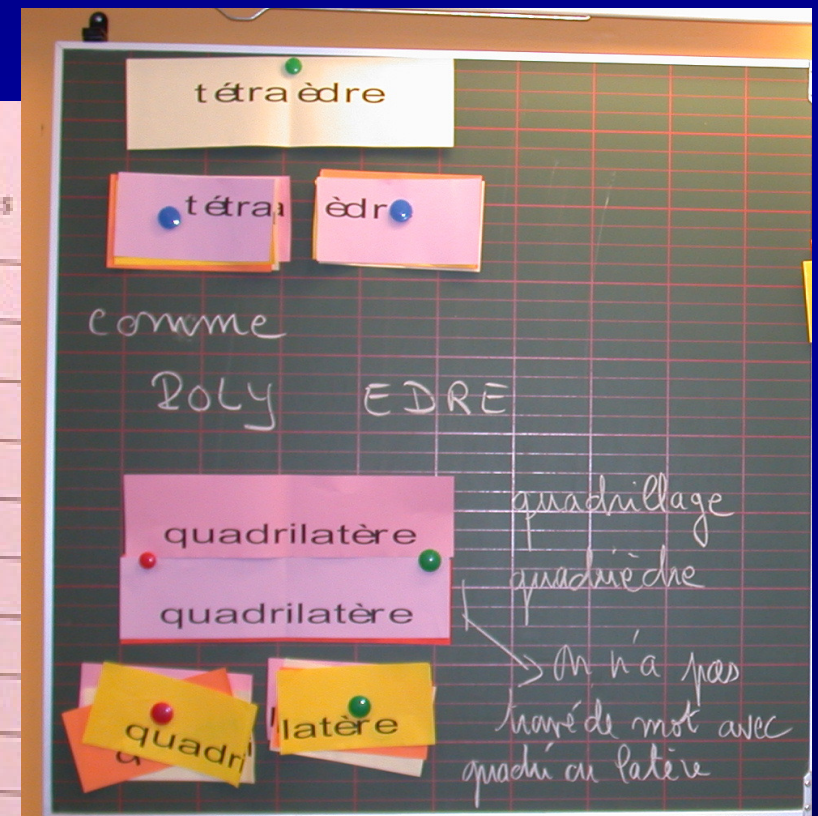 tétraèdre
tétra èdr
comme
POLY EDRE
quadrilatère
quadrilatère
quadrillage
quadrièdre
on n'a pas
trouvé de mot avec
quadri ou latère
quadri latère